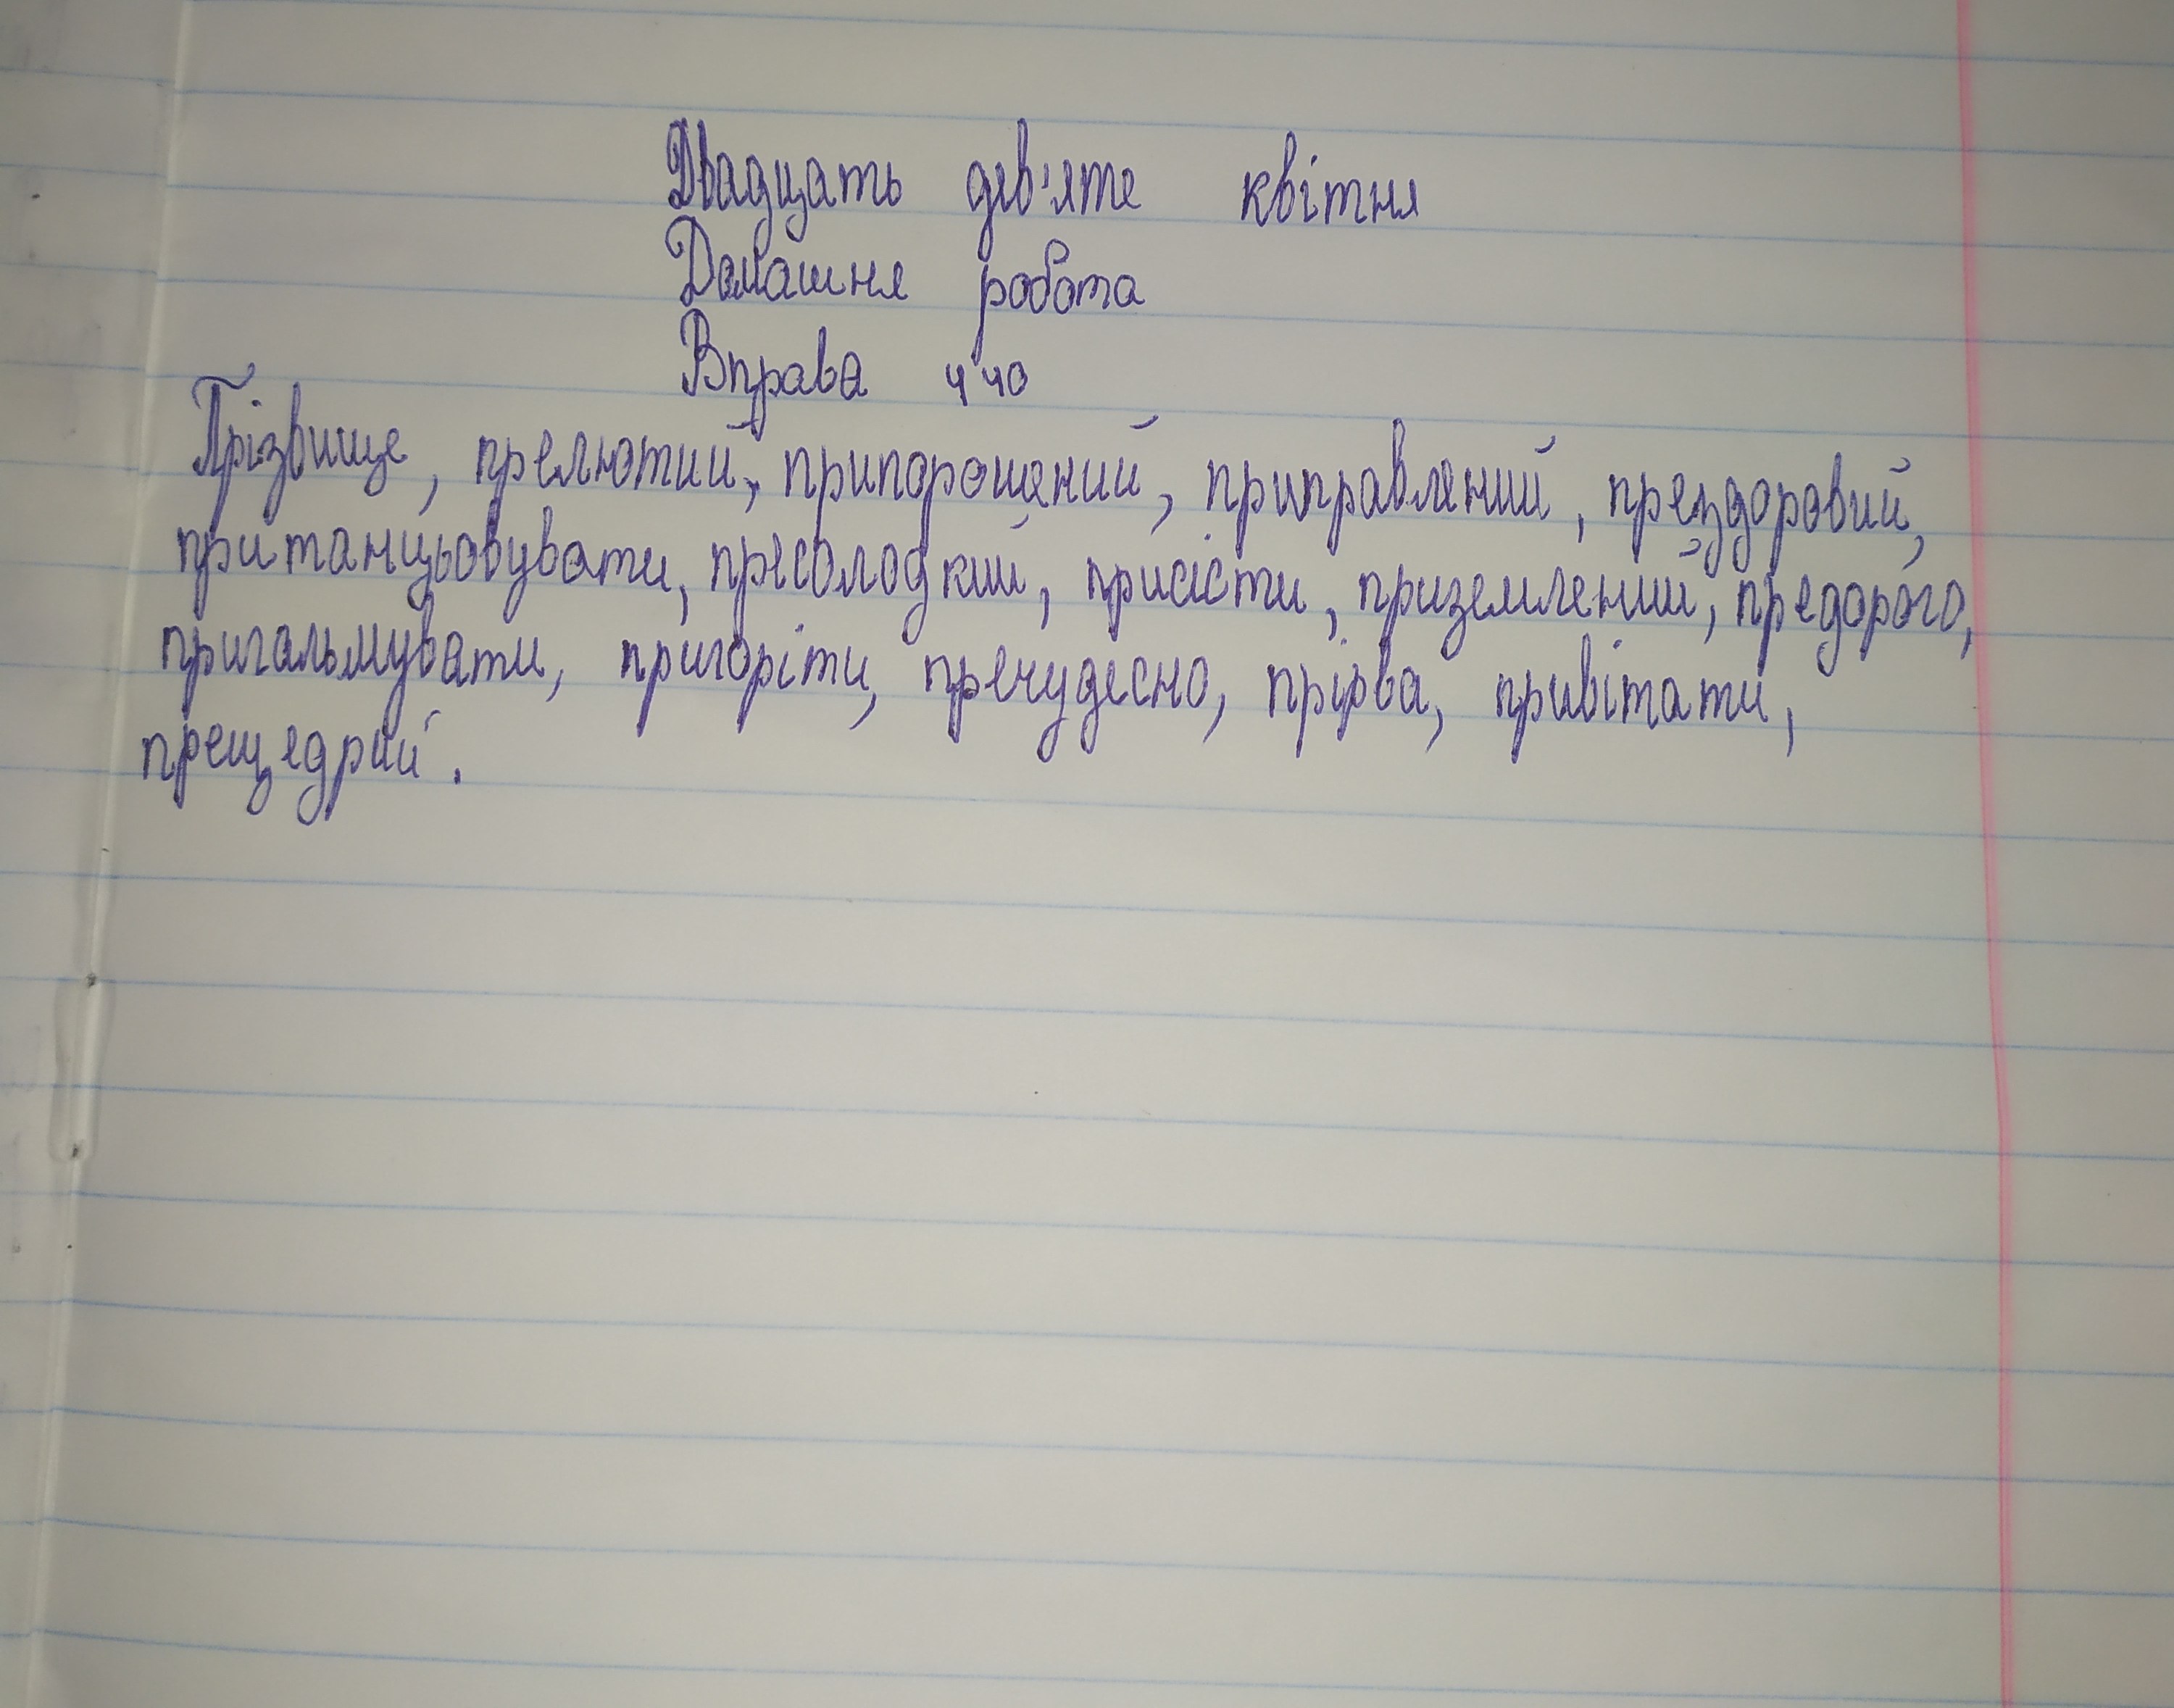 Двадцять дев'яте квітня
Домашня робота
Вправа 440
Прізвище, прелютий, припорошений, приправлений, прездоровий,
пританцьовувати, пресолодкий, присісти, приземлений, предорого,
пригальмувати, пригоріти, пречудесно, прірва, привітати,
прещедрий.